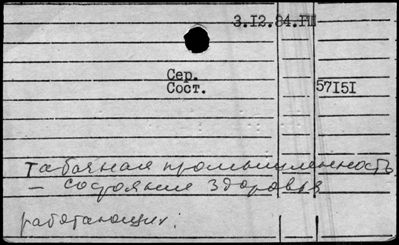 3.I2.84.ГШ
Сер.
Сост.
57I5I
Табачная промышленность
– состояние здоровья
работающих.